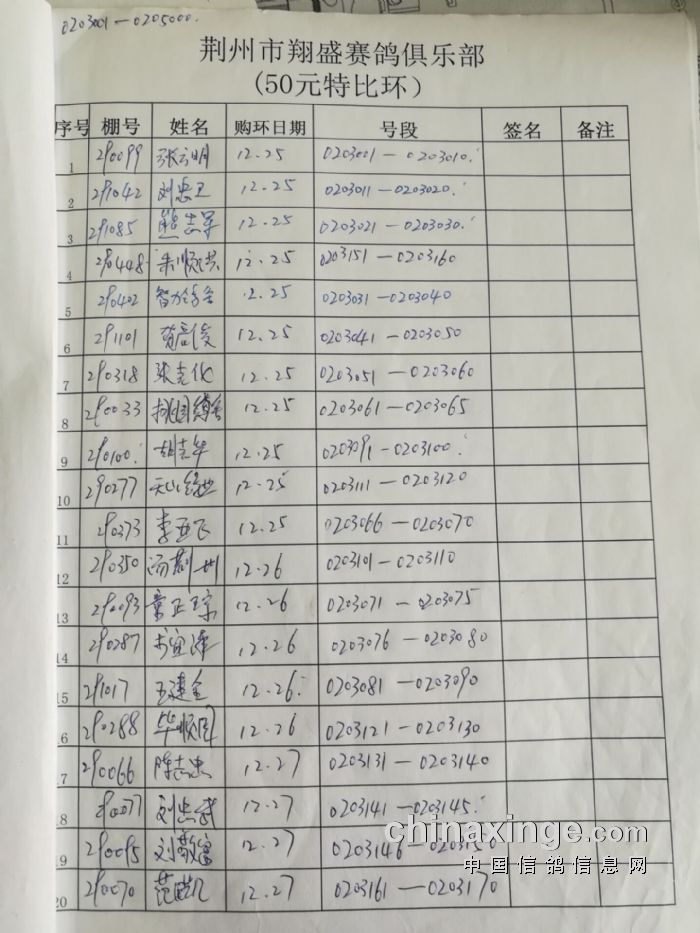 0203001—0205000.
荆州市翔盛赛鸽俱乐部
(50元特比环)
序号 棚号 姓名 购环日期 号段 签名 备注
1 290099 张云明 12.25 0203001—0203010.
2 291042 刘忠卫 12.25 0203011—0203020.
3 291085 熊志军 12.25 0203021—0203030.
4 290448 朱顺洪 12.25 0203151—0203160
5 290402 12.25 0203031—0203040
6 291101 12.25 0203041—0203050
7 290318 张克化 12.25 0203051—0203060
8 290033 桃园缚舍 12.25 0203061—0203065
9 290100. 胡克华 12.25 0203091—0203100.
10 290277 天山缘业 12.25 0203111—0203120
11 290373 李亚飞 12.25 0203066—0203070
12 290350 汤荆州 12.26 0203101—0203110
13 290093 章正琼 12.26 0203071—0203075
14 290287 12.26 0203076—0203080
15 291017 王建全 12.26. 0203081—0203090
6 290288 毕顺国 12.26 0203121—0203130
7 290066 陈志忠 12.27 0203131—0203140
8 290077 刘忠武 12.27 0203141—0203145.
9 290095 刘敬富 12.27 0203146—0203150
20 290070 范凯 12.27 0203161—0203170
chinaxinge.com
中国信鸽信息网